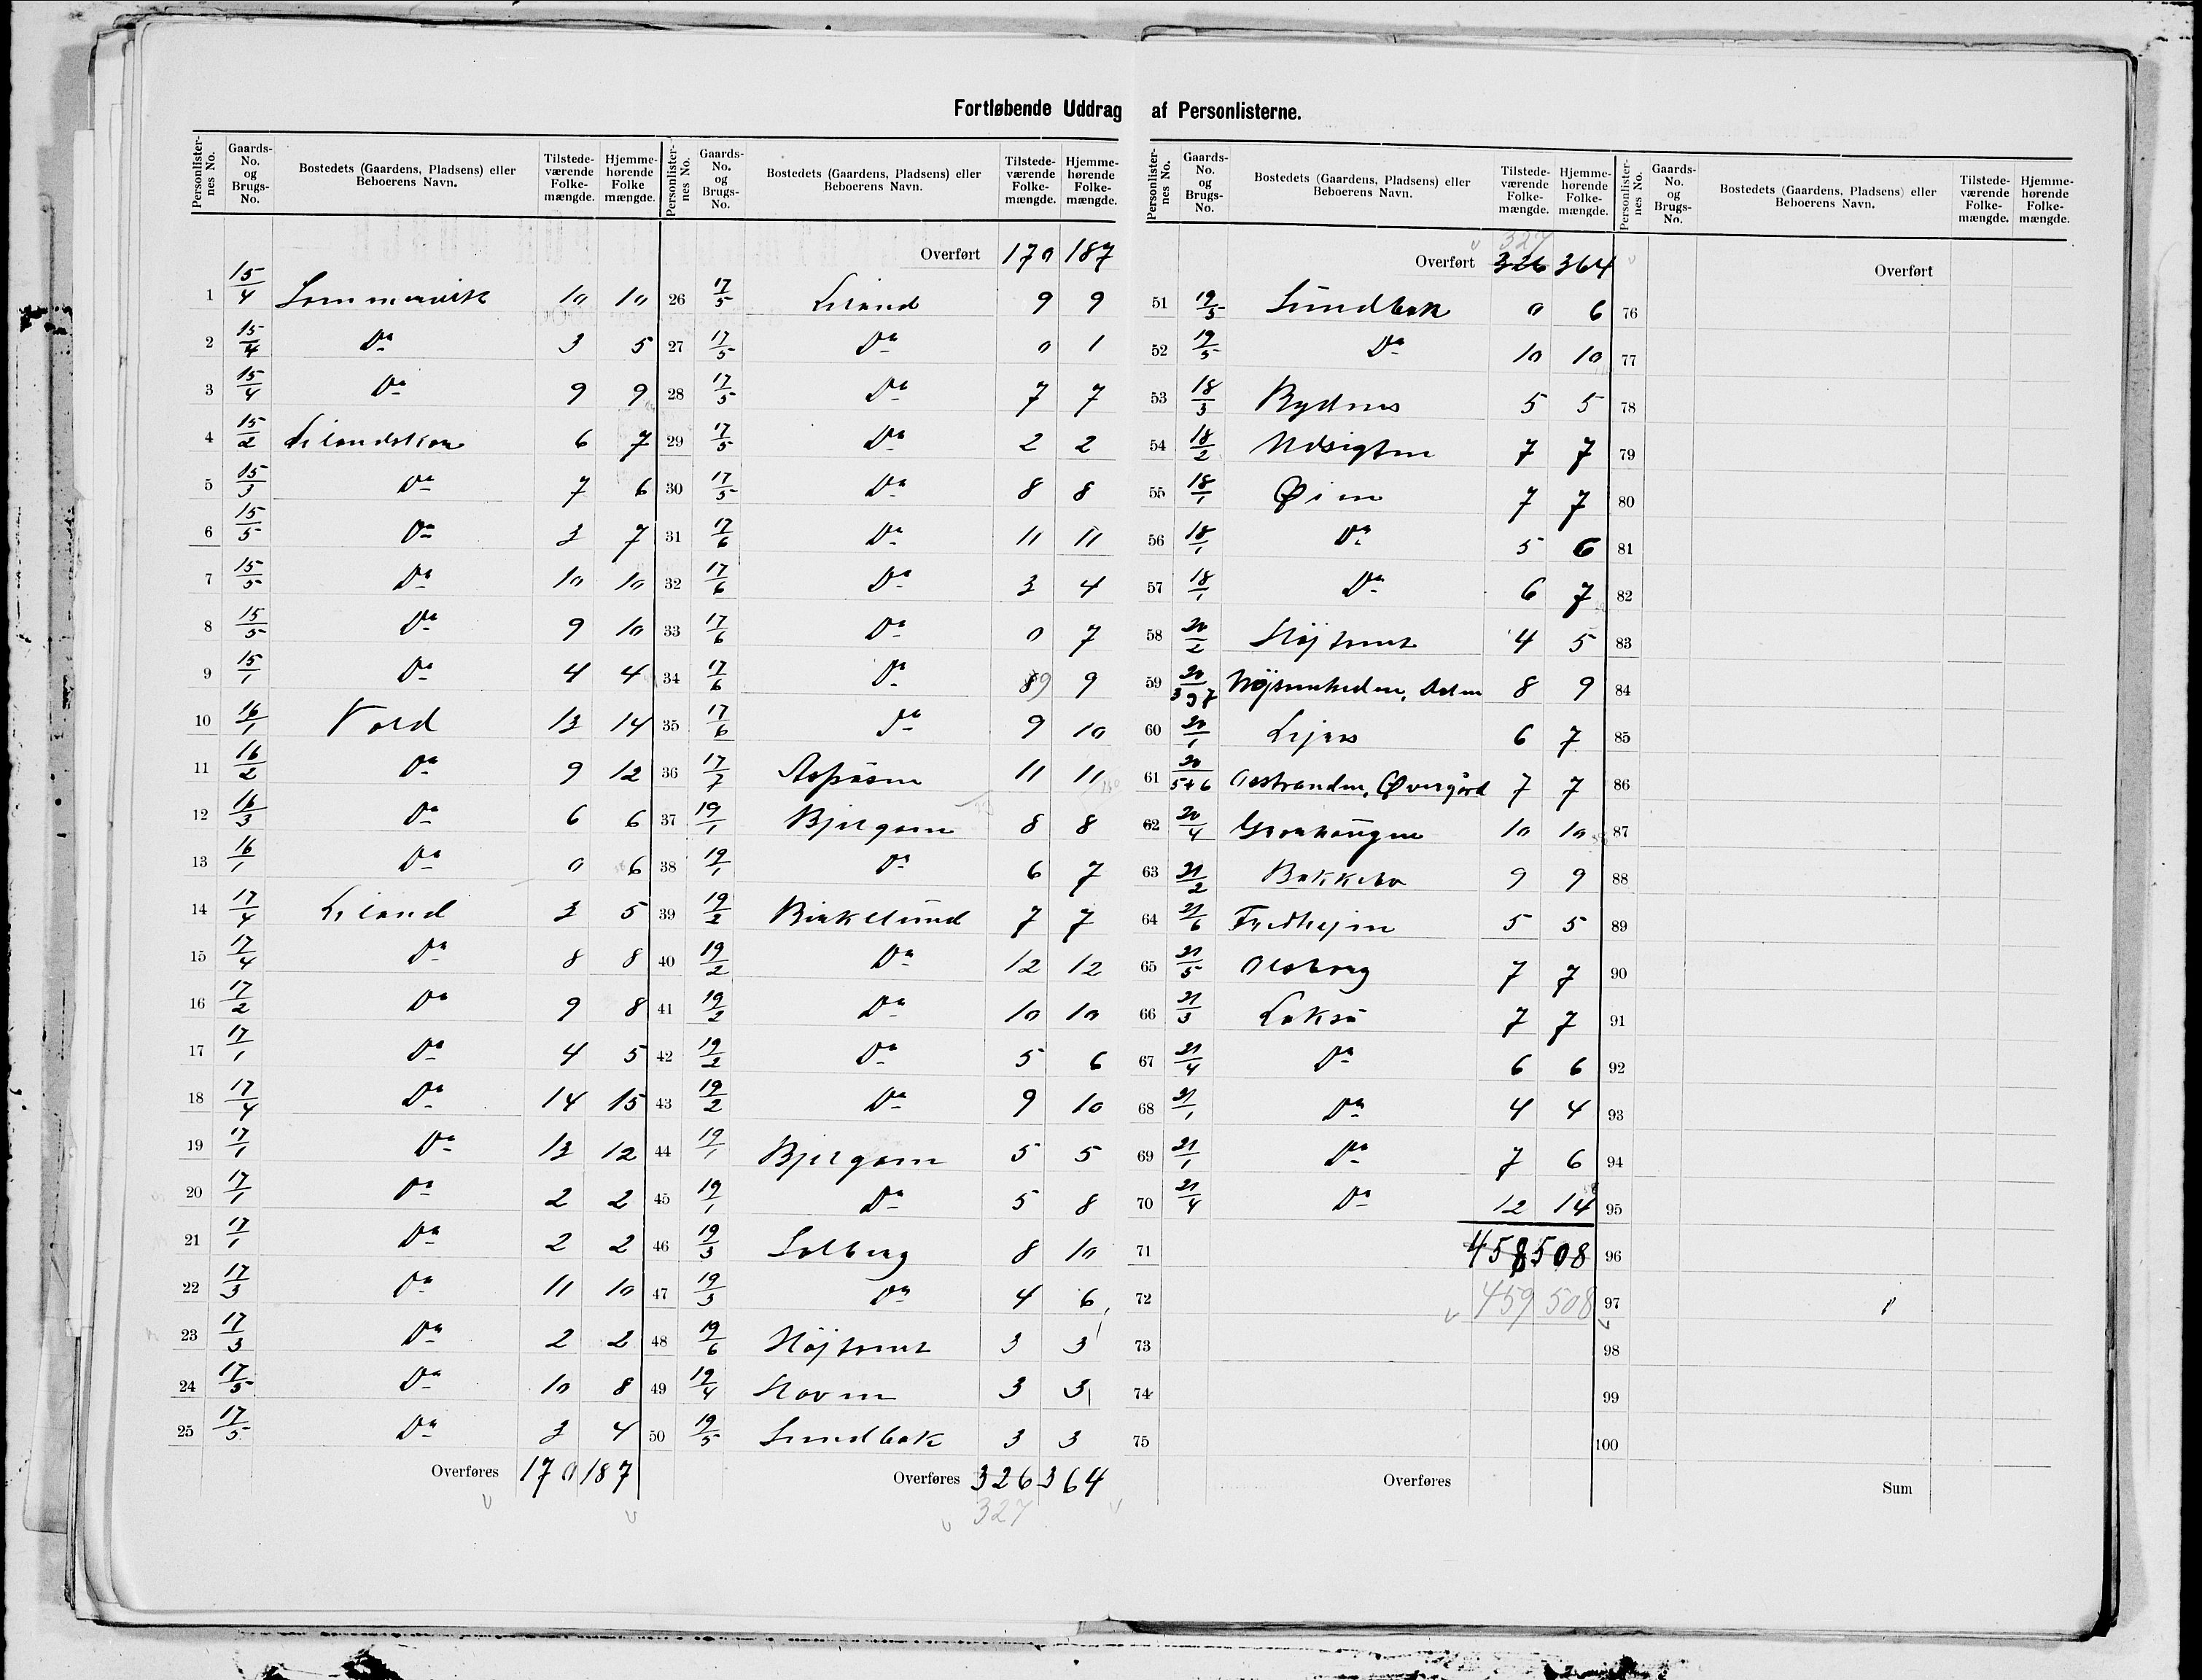 Fortløbende Uddrag af Personlisterne.
Personlisternes No. | Gaards-No. og Brugs-No. | Bostedets (Gaardens, Pladsens) eller Beboerens Navn. | Tilstedeværende Folkemængde. | Hjemmehørende Folkemængde.
1 15/4 Sommervik 10 10
2 15/4 Do 3 5
3 15/4 Do 9 9
4 15/2 Lilandskar 6 7
5 15/3 Do 7 6
6 15/5 Do 3 7
7 15/5 Do 10 10
8 15/5 Do 9 10
9 15/1 Do 4 4
10 16/1 Vold 13 14
11 16/2 Do 9 12
12 16/3 Do 6 6
13 16/1 Do 0 6
14 17/4 Liland 3 5
15 17/4 Do 8 8
16 17/2 Do 9 8
17 17/1 Do 4 5
18 17/4 Do 14 15
19 17/1 Do 13 12
20 17/1 Do 2 2
21 17/1 Do 2 2
22 17/3 Do 11 10
23 17/3 Do 2 2
24 17/5 Do 10 8
25 17/5 Do 3 4
Overføres 170 187
Personlisternes No. | Gaards-No. og Brugs-No. | Bostedets (Gaardens, Pladsens) eller Beboerens Navn. | Tilstedeværende Folkemængde. | Hjemmehørende Folkemængde.
Overført 170 187
26 17/5 Liland 9 9
27 17/5 Do 0 1
28 17/5 Do 7 7
29 17/5 Do 2 2
30 17/5 Do 8 8
31 17/6 Do 11 11
32 17/6 Do 3 4
33 17/6 Do 0 7
34 17/6 Do 8 9 9
35 17/6 Do 9 10
36 17/7 Aspåsen 11 11
37 19/1 Bjergom 8 8
38 19/1 Do 6 7
39 19/2 Birkelund 7 7
40 19/2 Do 12 12
41 19/2 Do 10 10
42 19/2 Do 5 6
43 19/2 Do 9 10
44 19/1 Bjergom 5 5
45 19/1 Do 5 8
46 19/3 Solberg 8 10
47 19/3 Do 4 6
48 19/6 Højtomt 3 3
49 19/4 Hoven 3 3
50 19/5 Sundbak 3 3
Overføres 326 364
327
Personlisternes No. | Gaards-No. og Brugs-No. | Bostedets (Gaardens, Pladsens) eller Beboerens Navn. | Tilstedeværende Folkemængde. | Hjemmehørende Folkemængde.
327
Overført 326 364
51 19/5 Sundbak 0 6
52 19/5 Do 10 10
53 18/3 Rydnes 5 5
54 18/2 Udsigten 7 7
55 18/1 Øien 7 7
56 18/1 Do 5 6
57 18/1 Do 6 7
58 20/2 Højtomt 4 5
59 20/3 9 7 Nøjsomheden, Dalen 8 9
60 20/1 6 7
61 20/5+6 Aastranden, Øvergård 7 7
62 20/4 Granhaugen 10 10
63 21/2 Bakkebo 9 9
64 21/6 Fredhejm 5 5
65 21/5 Olsborg 7 7
66 21/3 Lakså 7 7
67 21/4 Do 6 6
68 21/1 Do 4 4
69 21/1 Do 7 6
70 21/4 Do 12 14
71 458 508
72 459 508
73
74
75
Overføres
Personlisternes No. | Gaards-No. og Brugs-No. | Bostedets (Gaardens, Pladsens) eller Beboerens Navn. | Tilstedeværende Folkemængde. | Hjemmehørende Folkemængde.
Overført
76
77
78
79
80
81
82
83
84
85
86
87
88
89
90
91
92
93
94
95
96
97
98
99
100
Sum